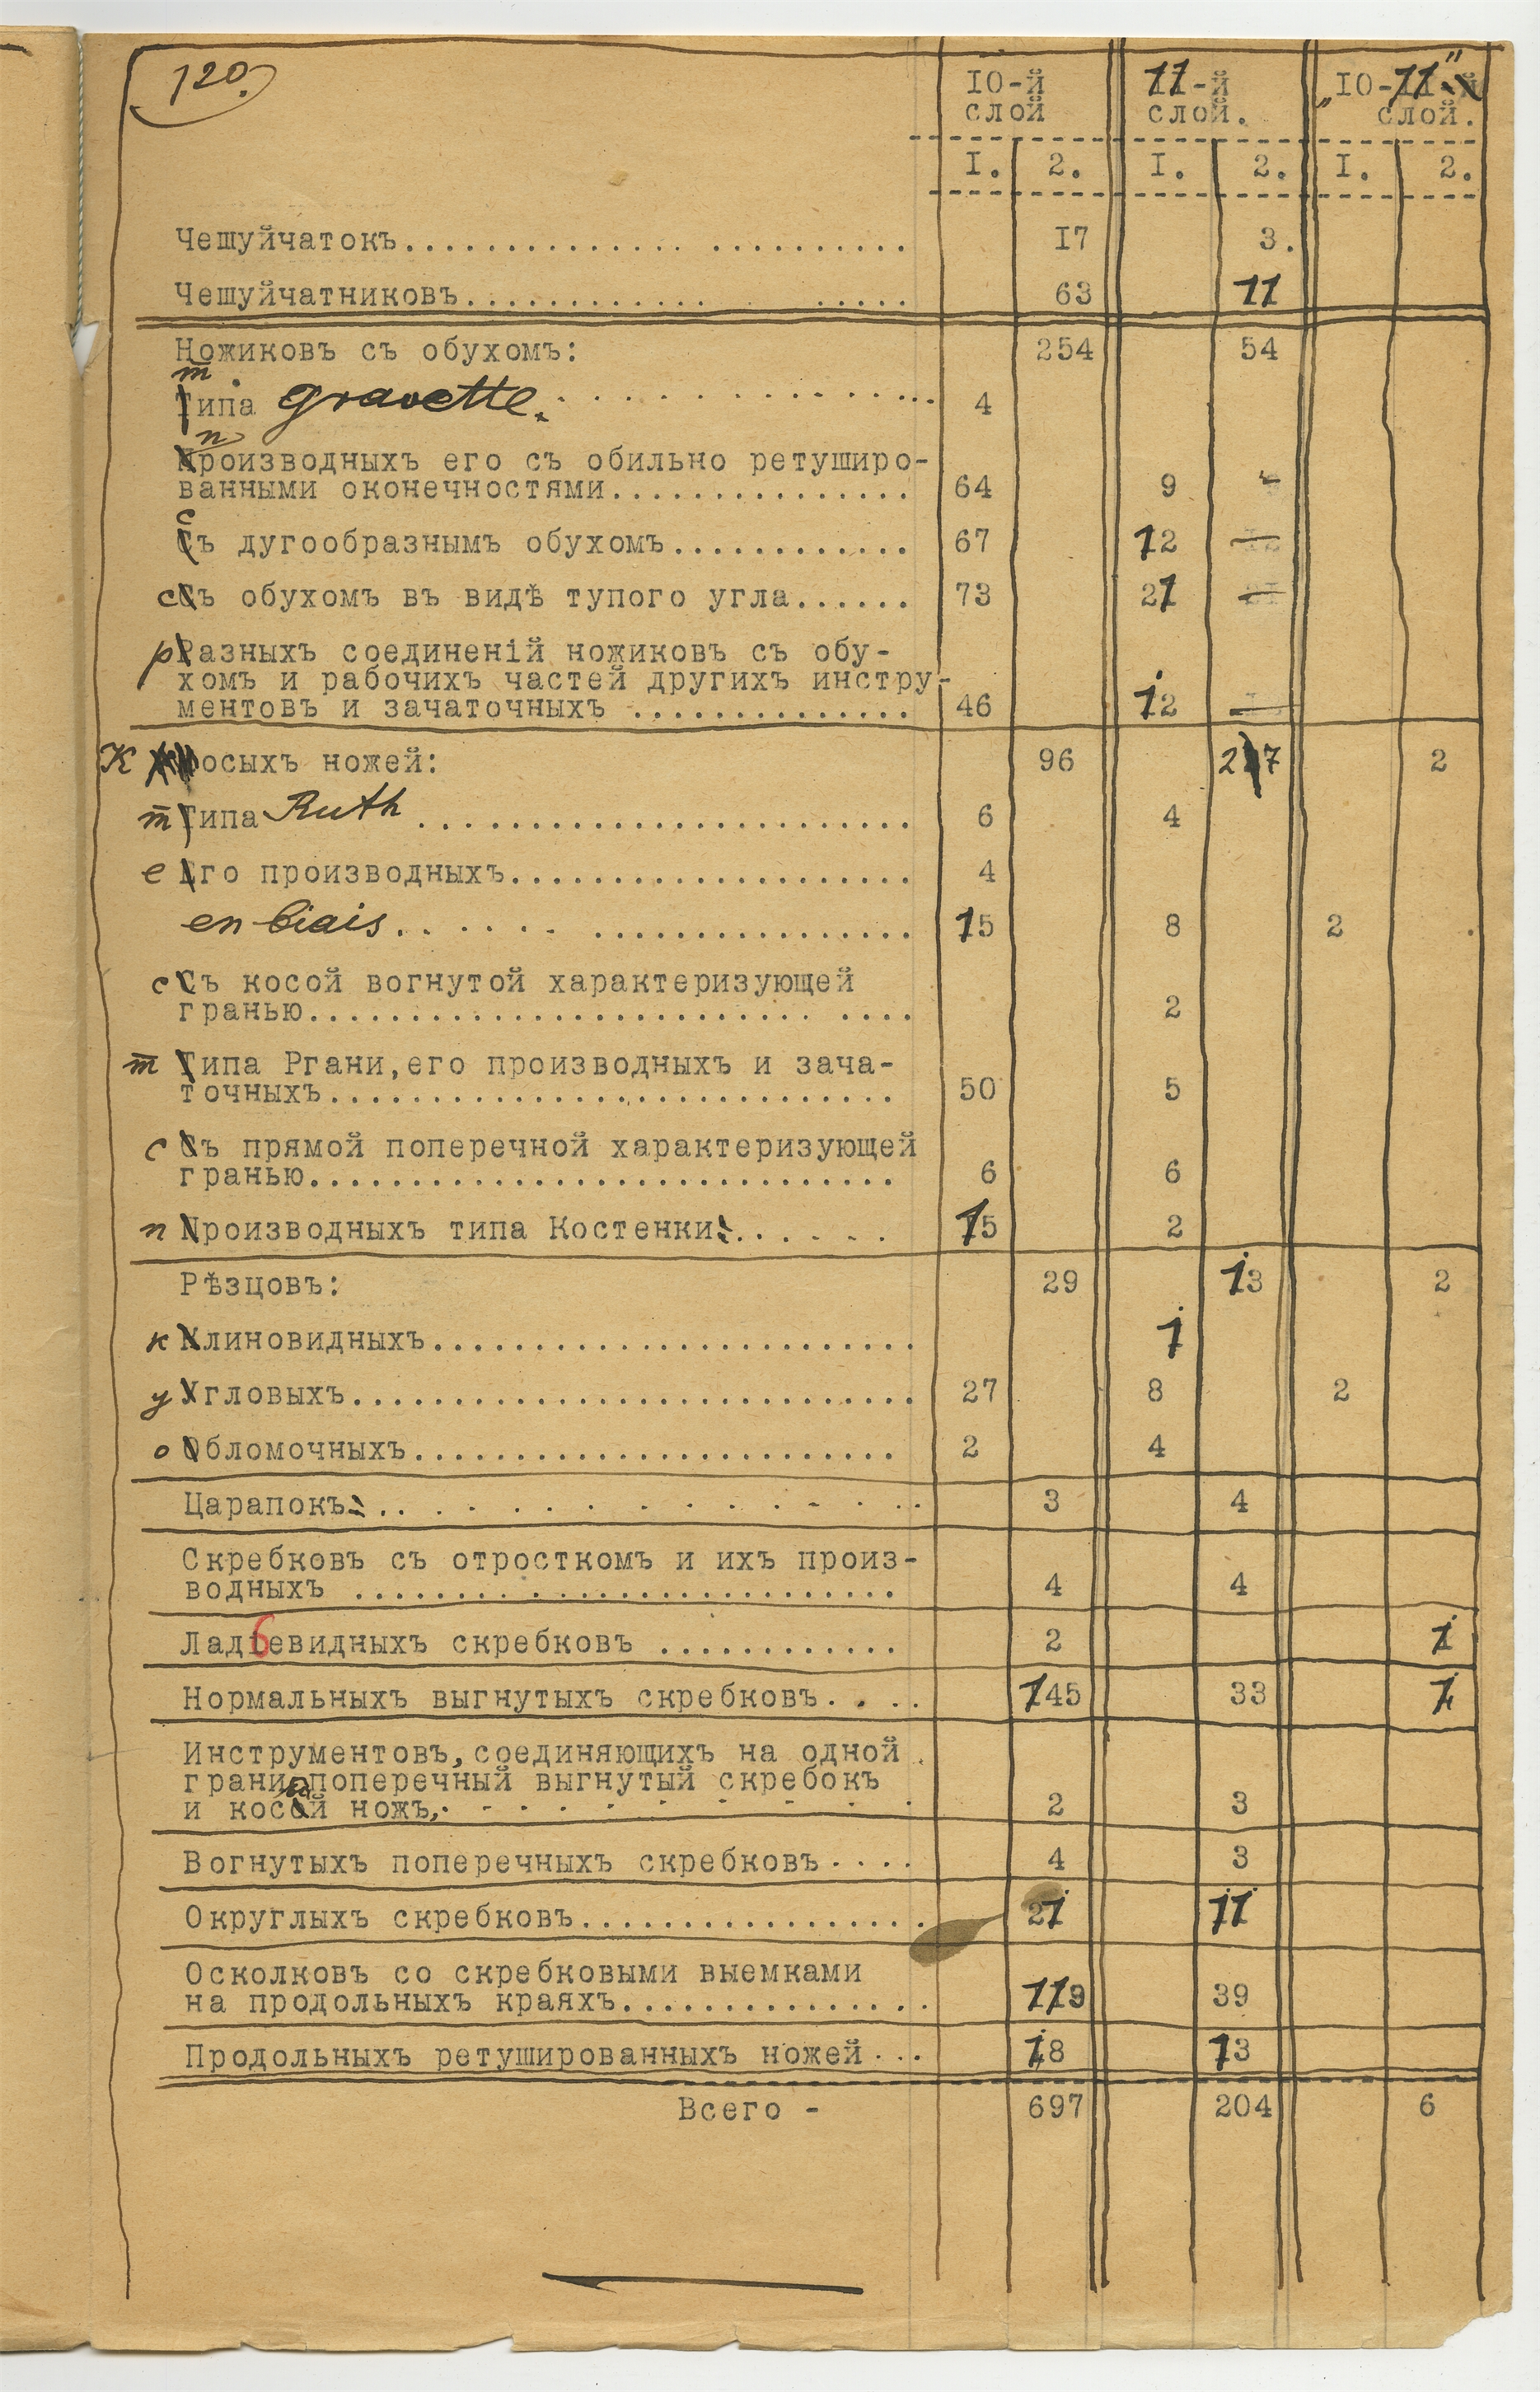 120.
10-й 11-й „10-11"
слой слой. слой.
I. 2. I. 2. I. 2.
Чешуйчатокъ.............. .......... 17 3.
Чешуйчатниковъ............ ..... 63 11
Ножиковъ съ обухомъ: 254 54
типа gravette. . . . . . . . . . . . . . . . 4
производныхъ его съ обильно ретуширо-
ванными оконечностями............... 64 9
съ дугообразнымъ обухомъ............ 67 12
съ обухомъ въ видѣ тупого угла...... 73 21
разныхъ соединеній ножиковъ съ обу-
хомъ и рабочихъ частей другихъ инстру-
ментовъ и зачаточныхъ .............. 46 12
Косыхъ ножей: 96 27 2
типа Ruth ........................ 6 4
его производныхъ.................... 4
en biais. . . . . . . ................ 15 8 2
съ косой вогнутой характеризующей
гранью......................... .... 2
типа Ргани,его производныхъ и зача-
точныхъ............................ 50 5
съ прямой поперечной характеризующей
гранью............................. 6 6
производныхъ типа Костенки. . . . . . . 15 2
Рѣзцовъ: 29 13 2
клиновидныхъ........................ 1
угловыхъ............................ 27 8 2
обломочныхъ........................ 2 4
Царапокъ. . . . . . . . . . . . . 3 4
Скребковъ съ отросткомъ и ихъ произ-
водныхъ ........................... 4 4
Ладьевидныхъ скребковъ ............ 2 1
Нормальныхъ выгнутыхъ скребковъ. . . . 145 33 1
Инструментовъ,соединяющихъ на одной
грани поперечный выгнутый скребокъ
и косой ножъ, . . . . . . . . . . 2 3
Вогнутыхъ поперечныхъ скребковъ. . . . 4 3
Округлыхъ скребковъ................. 21 11
Осколковъ со скребковыми выемками
на продольныхъ краяхъ............... 119 39
Продольныхъ ретушированныхъ ножей . . . 18 13
Всего - 697 204 6